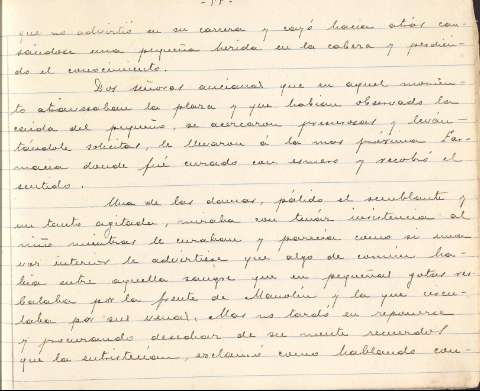 - 11 -
que no advirtió en su carrera y cayó hacia atrás cau-
sándose una pequeña herida en la cabeza y perdien-
do el conocimiento.
Dos señoras ancianas que en aquel momen-
to atravesaban la plaza y que habían observado la
caída del pequeño, se acercaron presurosas y leván-
tándole solícitas, le llevaron á la mas próxima Far-
macia donde fué curado con esmero y recobró el
sentido.
Una de las damas, pálido el semblante y
un tanto agitada, miraba con tenáz insistencia al
niño mientras le curaban y parecía como si una
voz interior le advirtiese que algo de común ha-
bía entre aquella sangre que en pequeñas gotas res-
balaba por la frente de Manolín y la que circu-
laba por sus venas. Mas no tardó en reponerse
y procurando desechar de su mente recuerdos
que la entristecían, exclamó como hablando con-